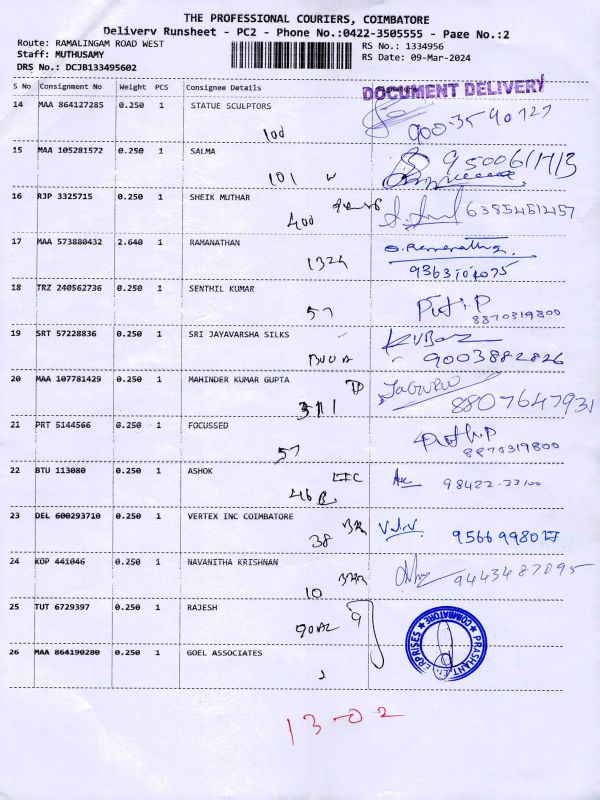 THE PROFESSIONAL COURIERS, COIMBATORE
Delivery Runsheet - PC2 - Phone No.:0422-3505555 - Page No.:2
Route: RAMALINGAM ROAD WEST
RS No.: 1334956
Staff: MUTHUSAMY
RS Date: 09-Mar-2024
DRS No.: DCJB133495602
S No Consignment No Weight PCS Consignee Details
DOCUMENT DELIVERY
14 MAA 864127285 0.250 1 STATUE SCULPTORS
100
15 MAA 105281572 0.250 1 SALMA
101 W
16 RJP 3325715 0.250 1 SHEIK MUTHAR
400 6385451457
17 MAA 573880432 2.640 1 RAMANATHAN
132
18 TRZ 240562736 0.250 1 SENTHIL KUMAR
57 8870319800
19 SRT 57228836 0.250 1 SRI JAYAVARSHA SILKS
9003882826
20 MAA 107781429 0.250 1 MAHINDER KUMAR GUPTA
311 8807647931
21 PRT 5144566 0.250 1 FOCUSSED
57 8870319800
22 BTU 113080 0.250 1 ASHOK
LIC
46 B
23 DEL 600293710 0.250 1 VERTEX INC COIMBATORE
38
24 KOP 441046 0.250 1 NAVANITHA KRISHNAN
9443487095
10
25 TUT 6729397 0.250 1 RAJESH
26 MAA 864190280 0.250 1 GOEL ASSOCIATES
COIMBATORE
13-02